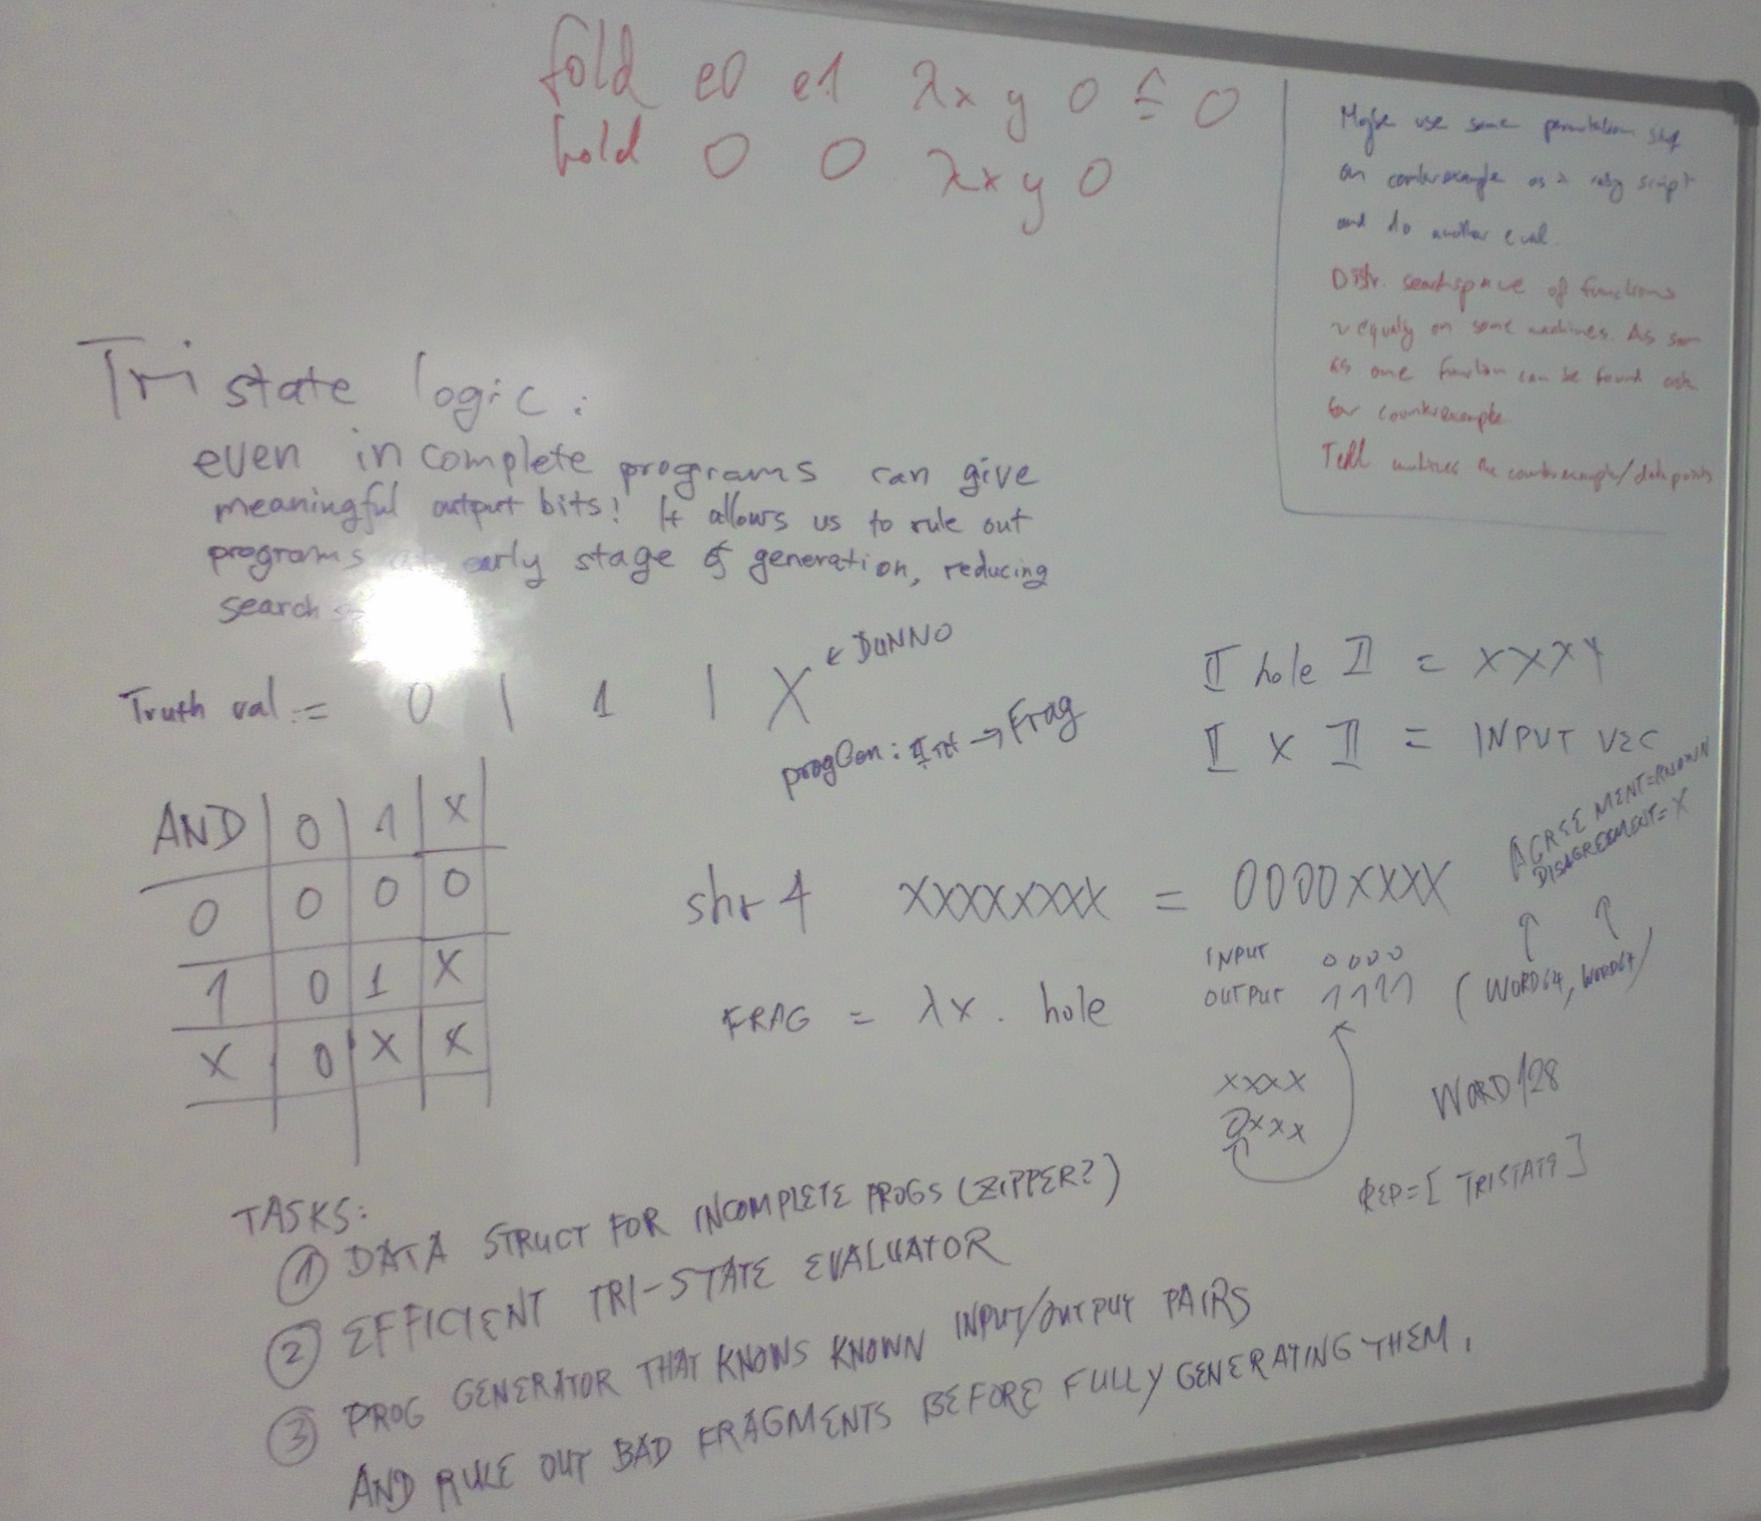 fold e0 e1 λx y 0 ≙ 0
fold 0 0 λx y 0
Maybe use some permutation
on counterexample as a ruby script
and do another eval.
Distr. searchspace of functions
~ equaly on some machines. As soon
as one function can be found ask
for counterexample
Tell machines the counterexample/datapoints
Tri state logic:
even incomplete programs can give
meaningful output bits! It allows us to rule out
programs at early stage of generation, reducing
search
Truth val := 0 | 1 | X ← DUNNO
progGen: Int → Frag
⟦ hole ⟧ = XXXX
⟦ x ⟧ = INPUT VEC
AGREEMENT=KNOWN
DISAGREEMENT=X
AND | 0 | 1 | X
0 | 0 | 0 | 0
1 | 0 | 1 | X
X | 0 | X | X
shr 4 XXXXXXXX = 0000XXXX
INPUT 0000
OUTPUT 1111
(WORD64, WORD64)
FRAG = λx. hole
XXXX
0XXX
WORD128
REP=[TRISTATE]
TASKS:
① DATA STRUCT FOR INCOMPLETE PROGS (ZIPPER?)
② EFFICIENT TRI-STATE EVALUATOR
③ PROG GENERATOR THAT KNOWS KNOWN INPUT/OUTPUT PAIRS
AND RULE OUT BAD FRAGMENTS BEFORE FULLY GENERATING THEM.